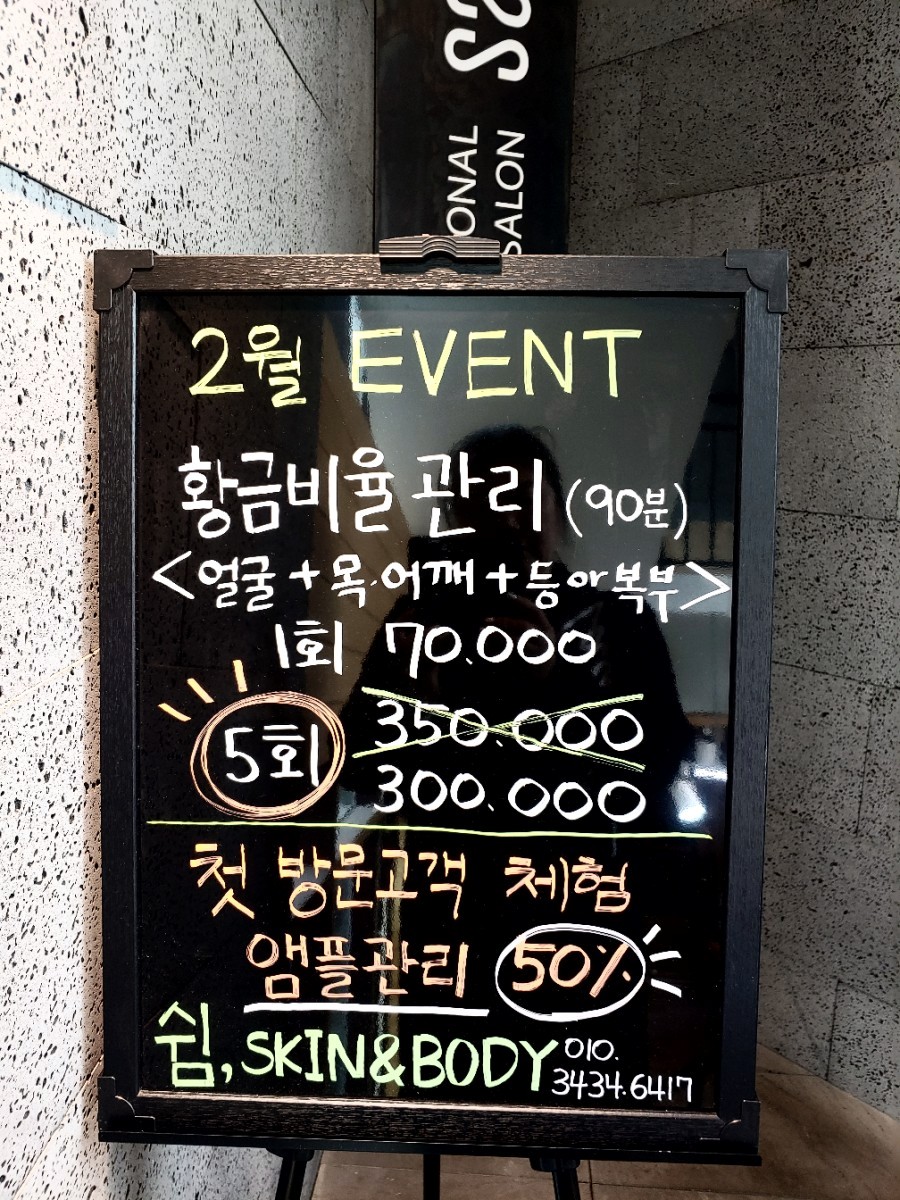 ONAL
SALON
2월 EVENT
황금비율 관리 (90분)
<얼굴+목.어깨+등or복부>
1회 70.000
5회 350.000
300.000
첫 방문고객 체험
앰플관리 50%
쉼, SKIN&BODY 010.
3434.6417